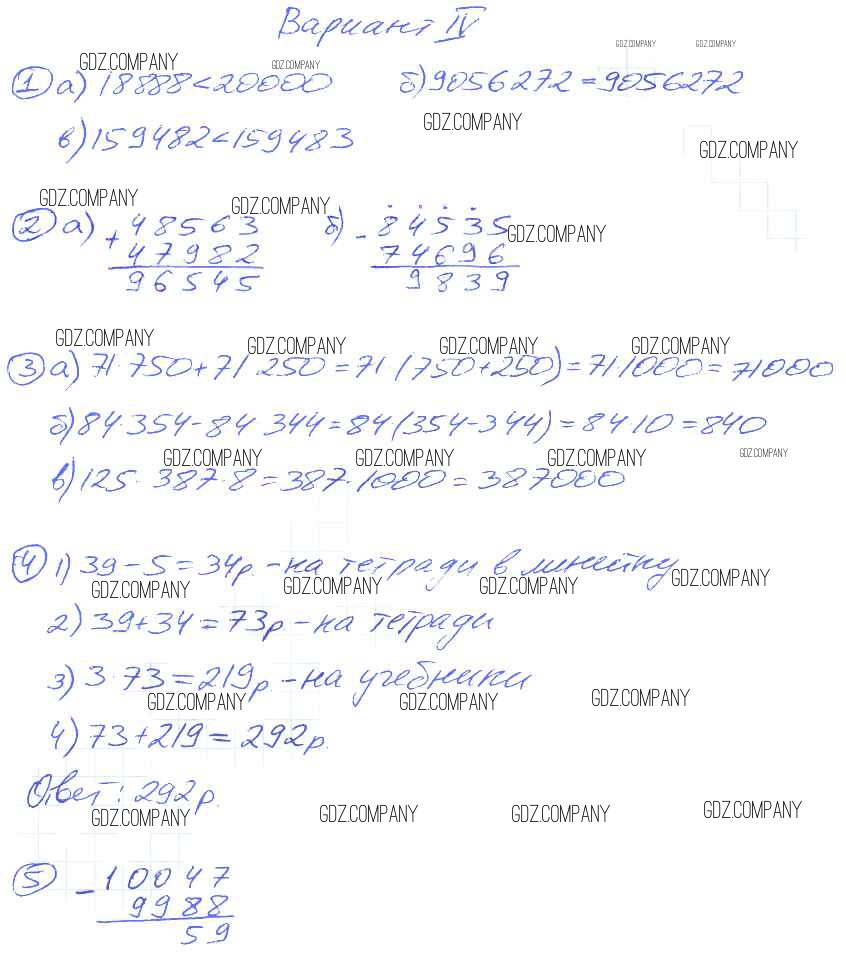 Вариант IV
GDZ.COMPANY GDZ.COMPANY GDZ.COMPANY GDZ.COMPANY
① а) 18888 < 20000 б) 9056272 = 9056272
в) 159482 < 159483
GDZ.COMPANY GDZ.COMPANY
GDZ.COMPANY GDZ.COMPANY GDZ.COMPANY
② а) + 48563 б) - 84535
47982 74696
96545 9839
GDZ.COMPANY GDZ.COMPANY GDZ.COMPANY GDZ.COMPANY
③ а) 71·750 + 71·250 = 71·(750+250) = 71·1000 = 71000
б) 84·354 - 84·344 = 84(354-344) = 84·10 = 840
GDZ.COMPANY GDZ.COMPANY GDZ.COMPANY GDZ.COMPANY
в) 125·387·8 = 387·1000 = 387000
④ 1) 39 - 5 = 34р. - на тетради в линейку
GDZ.COMPANY GDZ.COMPANY GDZ.COMPANY GDZ.COMPANY
2) 39 + 34 = 73р - на тетради
3) 3·73 = 219р. - на учебники
GDZ.COMPANY GDZ.COMPANY GDZ.COMPANY
4) 73 + 219 = 292р.
Ответ: 292р.
GDZ.COMPANY GDZ.COMPANY GDZ.COMPANY GDZ.COMPANY
⑤ - 10047
9988
59